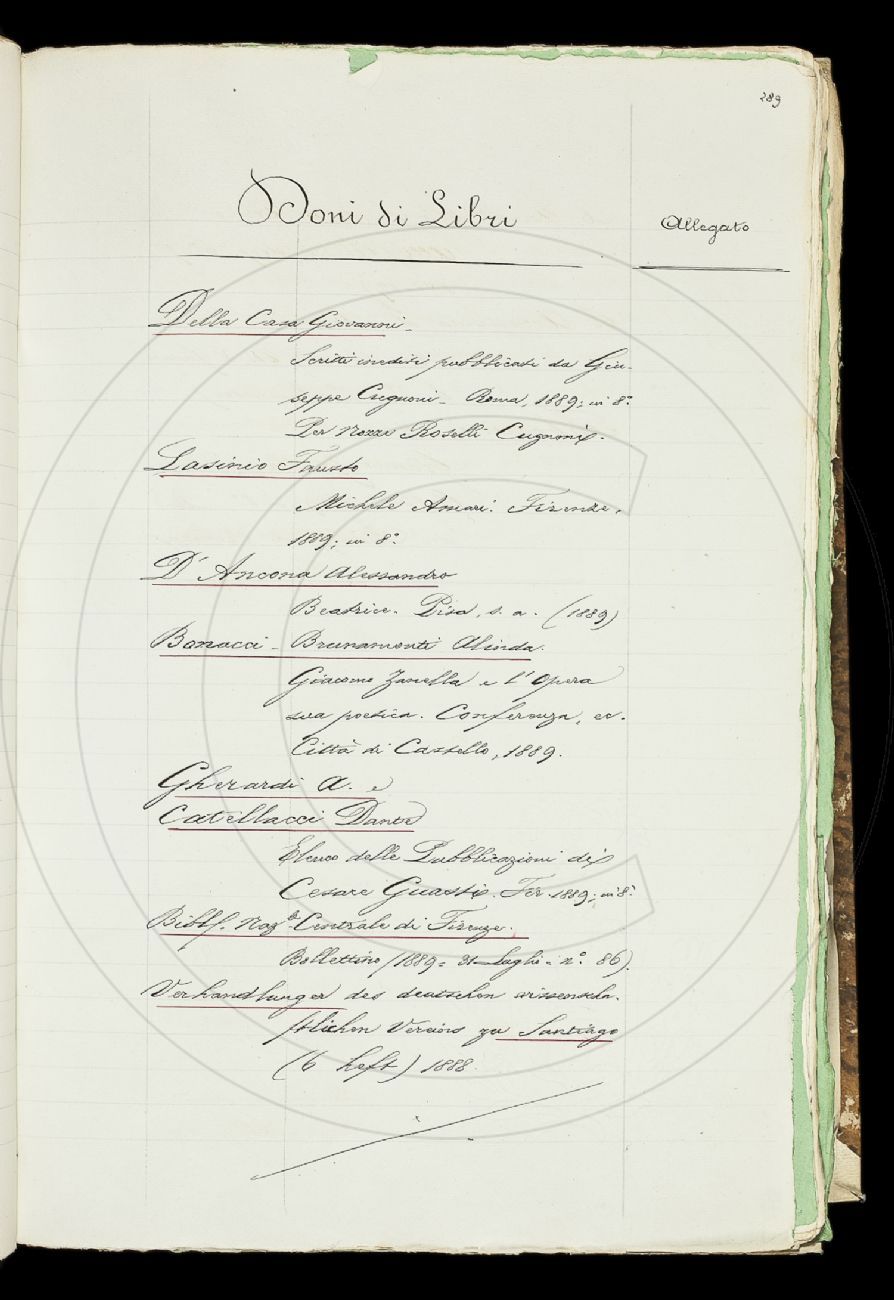 289
Doni di Libri
Allegato
Della Casa Giovanni -
Scritti inediti pubblicati da Giu-
seppe Cugnoni - Roma, 1889; in 8.°
Per Nozze Roselli Cugnoni.
Lasinio Fausto
Michele Amari. Firenze,
1889; in 8.°
D'Ancona Alessandro
Beatrice. Pisa, s. a. (1889)
Bonacci - Brunamonti Alinda.
Giacomo Zanella e l'Opera
sua poetica. Conferenza, ec.
Città di Castello, 1889.
Gherardi A. e
Catellacci Dante
Elenco delle Pubblicazioni di
Cesare Guasti. Fir 1889; in 8.°
Naz.le Centrale di Firenze.
Bollettino (1889 = 31 Luglio = n.° 86).
Verhandlungen des deutschen wissenscha-
ftlichen Vereins zu Santiago
(6 heft) 1888.